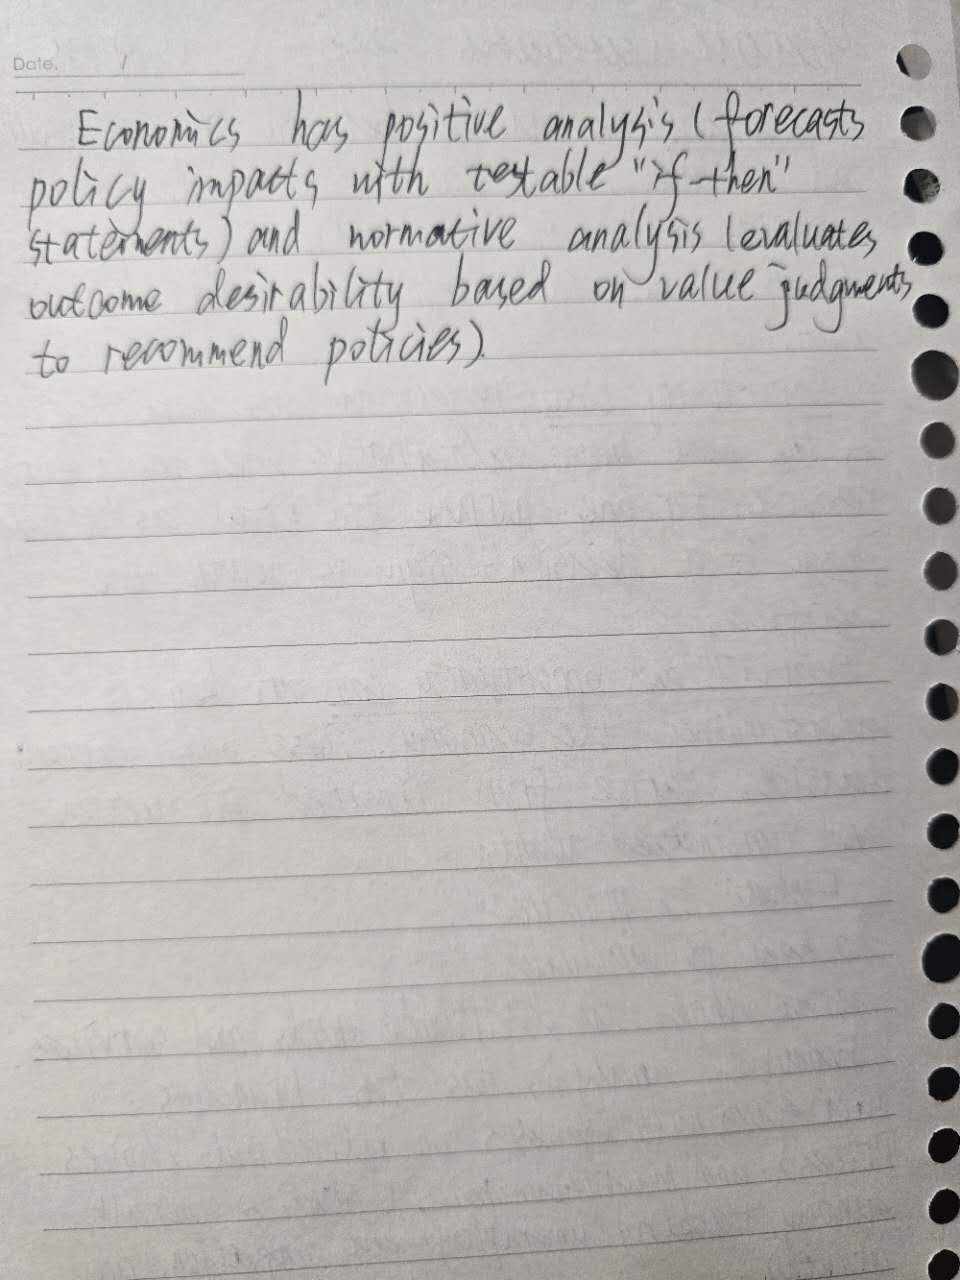 Date. /
Economics has positive analysis (forecasts
policy impacts with testable "if-then"
statements) and normative analysis (evaluates
outcome desirability based on value judgments
to recommend policies).